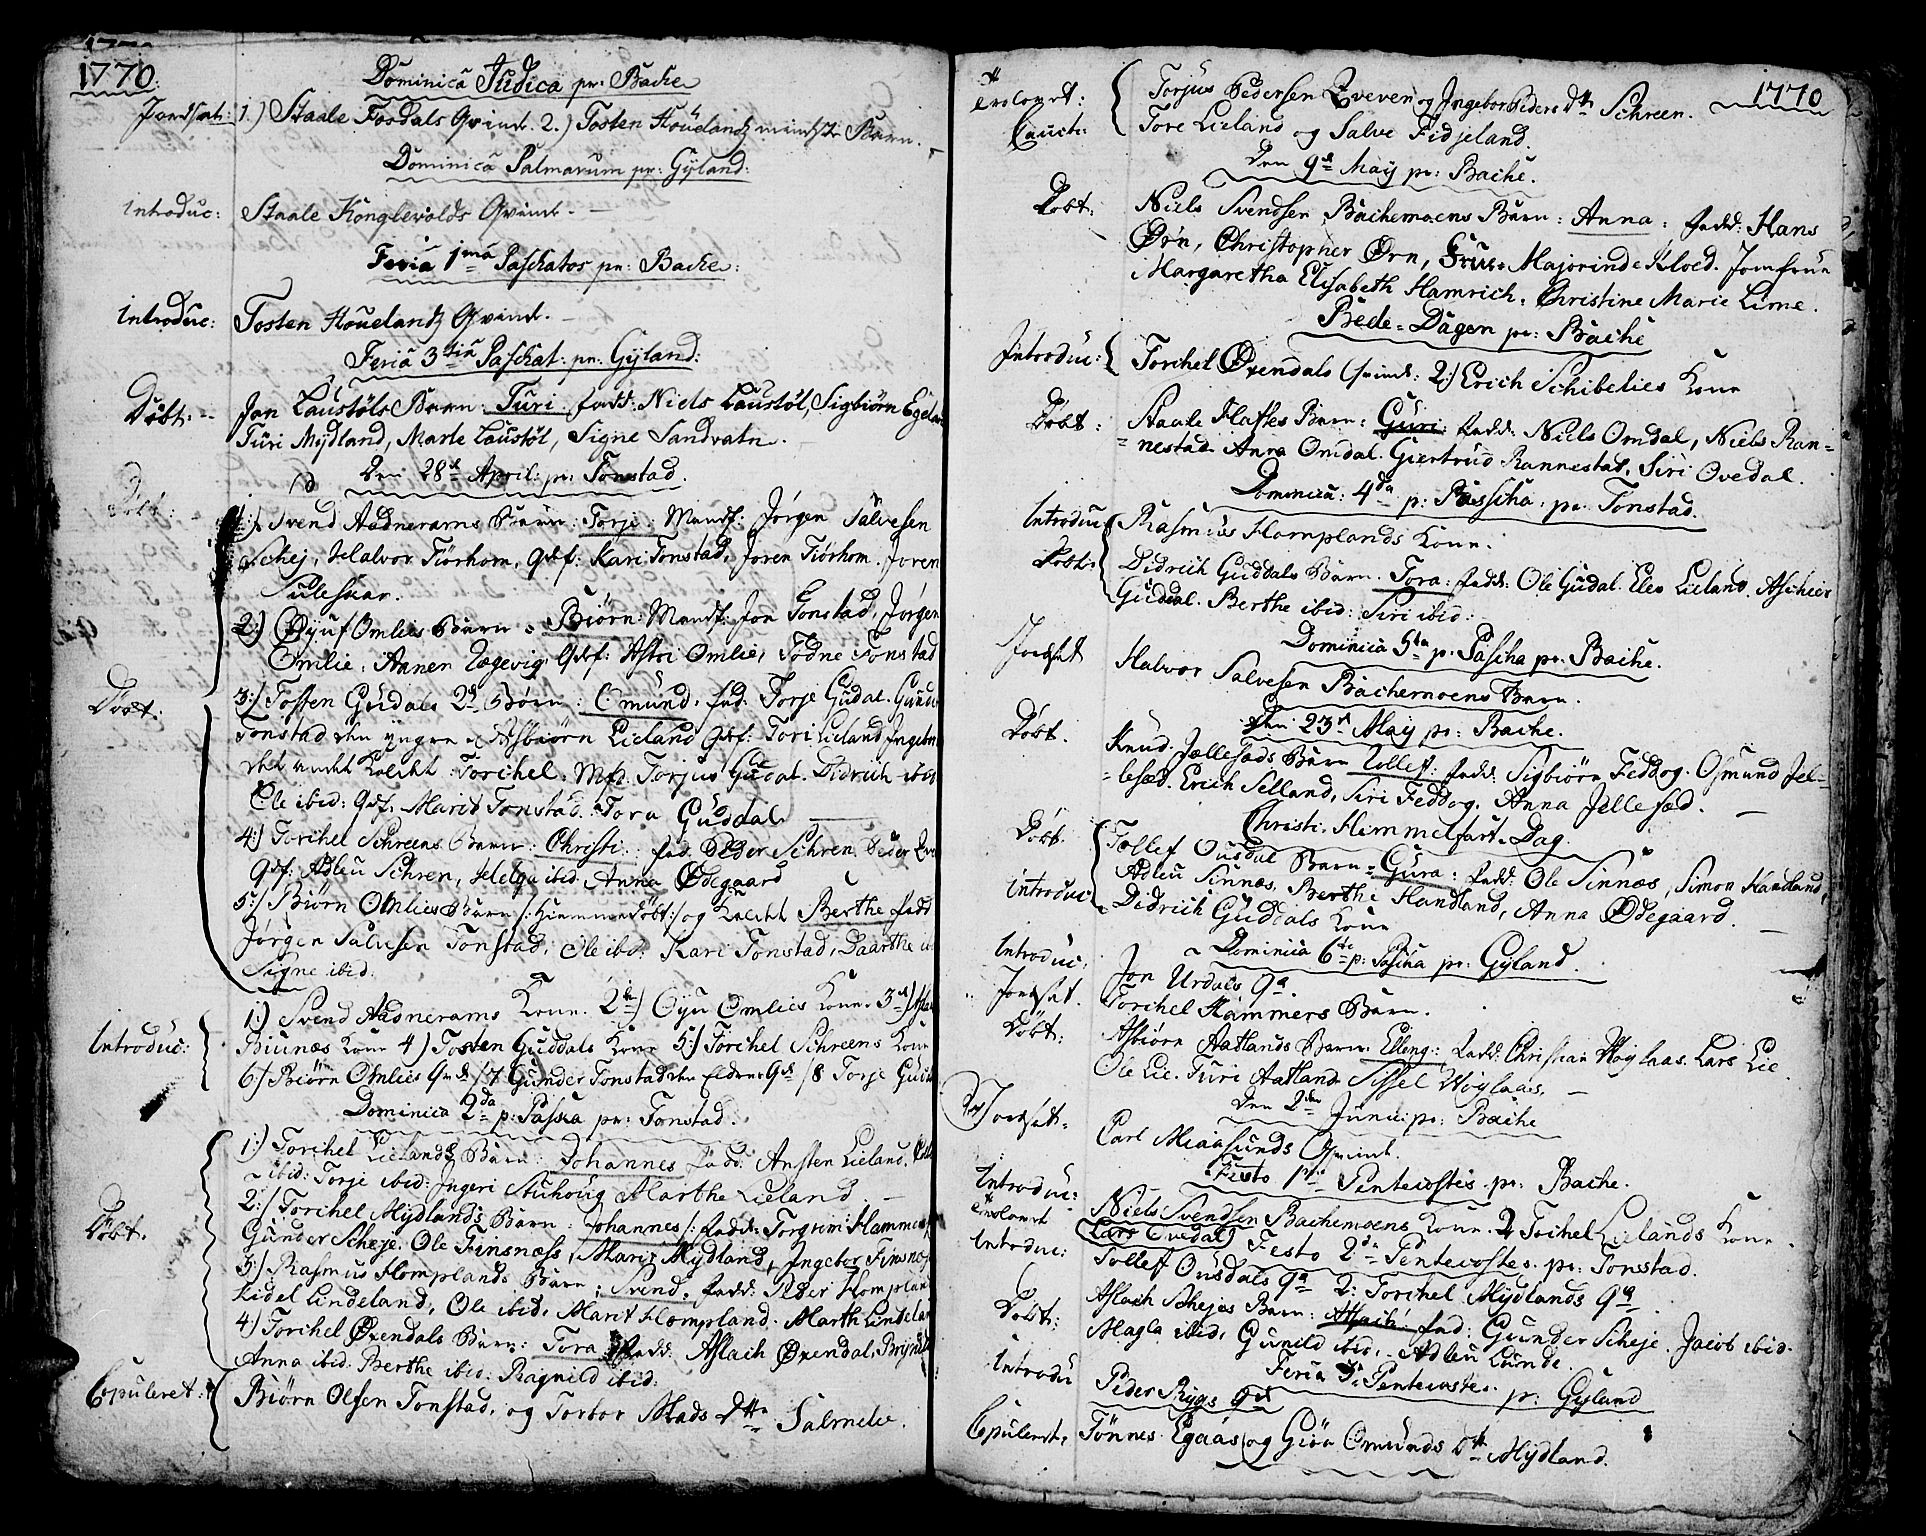 1770.
Dominica Judica pr: Bache
Jordsat: 1.) Staale Fosdals Qvind. 2.) Tosten Höuelandz mindste Barn.
Dominica Palmarum pr: Gyland:
Introduc: Staale Konglevolds Qvind.
Feria 1ma Paschatos pr: Bache:
Introduc: Tosten Höuelandz Qvind.
Feria 3tia Paschat: pr: Gyland:
Döbt: Jon Laustöls Barn: Turi fadd: Niels Laustöl, Sigbiörn Egeland
Turi Mydland, Marte Laustöl, Signe Sandvatn.
Den 28d April: pr: Tonstad.
Döbt: 1:) Svend Aadnerams Barn: Torje: Mandf: Jörgen Salvesen
Schej, Halvor Tiörhom, Qvf: Kari Tonstad, Joren Tiörhom. Joren
Suleskar.
2:) Öyuf Omlies Barn: Biörn: Mandf: Jon Tonstad, Jörgen
Omlie, Annen Lægevig, Qvf: Astri Omlie, Todne Tonstad
Döbt: 3:) Tosten Gudals 2de Börn: Omund: fad. Torje Gudal. Gunder
Tonstad den yngre Asbiörn Lieland Qvf: Tori Lieland Ingebor
det andet kaldet: Torchel: Mf: Torjus Gudal. Didrich ibid
Ole ibid: Qvf: Marit Tonstad. Tora Guddal
4:) Torchel Schreens Barn: Christi: fad. Peder Schren. Peder
Qvf: Adleu Schren, Helga ibid. Anna Ødegaard
5:) Biörn Omlies Barn /: Hiemmedöbt:/ og kaldet Berthe fadd
Jörgen Salvesen Tonstad, Ole ibd: Kari Tonstad, Daarthe
Signe ibid.
Introduc: 1:) Svend Aadnerams Kone. 2de) Oyu Omlies Kone. 3d)
Biunæs Kone 4) Tosten Guddals Kone 5:) Torchel Schreens Kone
6:) Biörn Omlies Qvd /7 Gunder Tonstad den Eldres Qd /8 Torje
Dominica 2da p: Pascha pr: Tonstad.
Döbt. 1:) Torchel Lielands Barn: Johannes fadd: Ansten Lieland,
ibid: Torje ibid: Ingeri Stuhoug Marthe Lieland.
2:) Torchel Mydlands Barn: Johannes/: fadd: Torgrim Hammer,
Gunder Scheje. Ole Finsnæss, Marit Mydland, Ingebor Finsnæs
3:) Rasmus Homplands Barn: Svend, fadd: Peder Hompland
Eidel Lindeland, Ole ibid. Marit Hompland. Marth Lindeland
4) Torchel Øxendals Barn: Tora fadd: Aslach Øxendal,
Anna ibid: Berthe ibid: Ragnild ibid:
Copuleret: Biörn Olsen Tonstad, og Torbor Mads Dtr Salmelie.
1770
Trolovet: Torjus Pedersen Eveven og Ingebor Peders Dtr Schreen.
Cauct: Tore Lieland og Salve Fidjeland.
Den 9d May pr: Bache.
Döbt: Niels Svendsen Bachemoens Barn: Anna: fadd: Hans
Ørn, Christopher Ørn, Frue Majorinde Kloed. Jomfrue
Margaretha Elisabeth Hamrich, Christine Marie Lime.
Bede-Dagen pr: Bache
Introduc: Torchel Øxendals Qvind: 2:) Erich Schibelies Kone
Döbt: Staale Flaftes Barn: Guri: fadd: Niels Omdal, Niels Ran-
nestad. Anna Omdal. Giertrud Rannestat, Siri Ovedal.
Dominica: 4da p: Pascha pr Tonstad.
Introduc Rasmus Homplands Kone.
Döbt: Didrich Guddals Barn. Tora: fadd: Ole Gudal. Elev Lieland. Ascheir
Guddal. Berthe ibid: Siri ibid:
Dominica 5ta p. Pascha pr Bache.
Jordsat Halvor Salvesen Bachemoens Barn.
Den 23d May pr: Bache.
Döbt. Knud Jellesads Barn Tollef: fadd: Sigbiörn Feddog. Osmund Jel-
lesad. Erich Selland, Siri Feddog. Anna Jellesad.
Christi Himmelfart Dag.
Döbt. Tollef Ousdal Barn: Gura: fadd: Ole Sinnæs, Simon Handland,
Adleu Sinnæs, Berthe Handland, Anna Ødegaard.
Introduc Didrich Guddals Kone
Dominica 6te p: Pascha pr: Gyland.
Introduc. Jon Urdals Qd.
Jordsat. Torchel Hammers Barn.
Döbt: Asbiörn Aatlands Barn: Elleng: fadd: Christian Höylaas. Lars Lie.
Ole Lie. Turi Aatland Sissel Höylaas.
Den 2den Junii pr: Bache
Jordsat. Carl Miaasunds Qvind.
Festo 1mo Pentecostes pr: Bache.
Introduc: Niels Svendsen Bachemoens Kone. 2 Torchel Lielands Kone
Trolovet Lars Ovedal Festo 2do Pentecostes pr: Tonstad.
Introduc: Tollef Ousdals Qd 2: Torchel Mydlands Qd.
Döbt: Aslach Schejes Barn: Aslach: fad: Gunder Scheje. Jacob ibid.
Magla ibid, Gunild ibid. Adleu Lunde.
Feria 3tia Pentecostes. pr: Gyland
Introdu Peder Rygs Qd
Copuleret, Tönnes Egaas og Giöa Omunds Dtr Mydland.